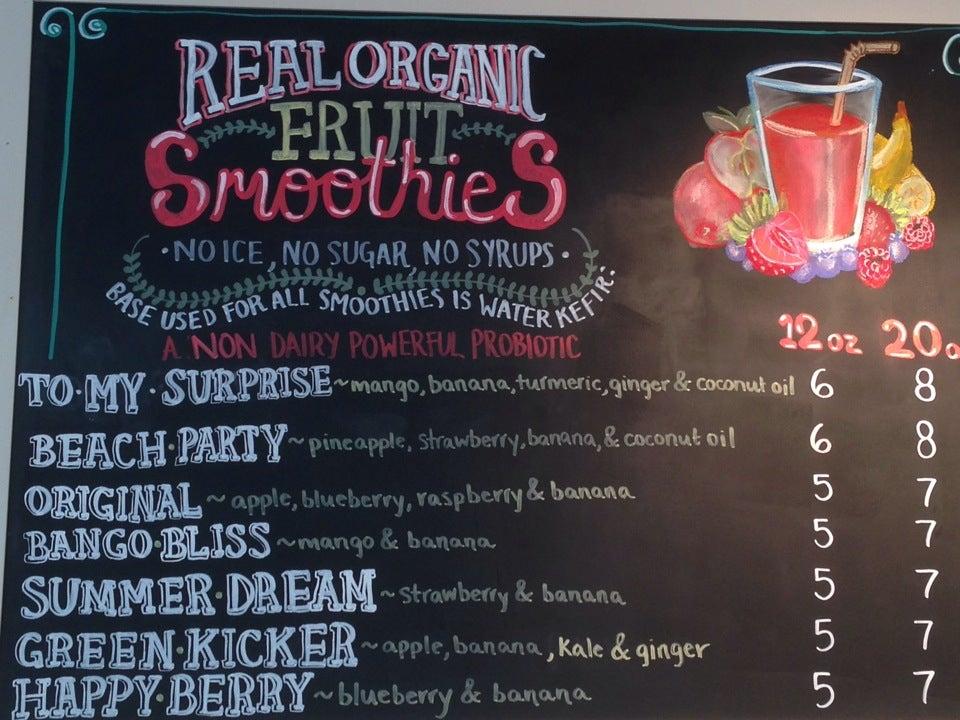 REAL ORGANIC
FRUIT
SmoothieS
·NO ICE, NO SUGAR, NO SYRUPS·
BASE USED FOR ALL SMOOTHIES IS WATER KEFIR:
A NON DAIRY POWERFUL PROBIOTIC
12oz 20o
TO·MY·SURPRISE ~mango, banana, turmeric, ginger & coconut oil 6 8
BEACH·PARTY ~ pineapple, strawberry, banana, & coconut oil 6 8
ORIGINAL ~ apple, blueberry, raspberry & banana 5 7
BANGO·BLISS ~mango & banana 5 7
SUMMER·DREAM ~ strawberry & banana 5 7
GREEN·KICKER ~ apple, banana, kale & ginger 5 7
HAPPY·BERRY ~ blueberry & banana 5 7